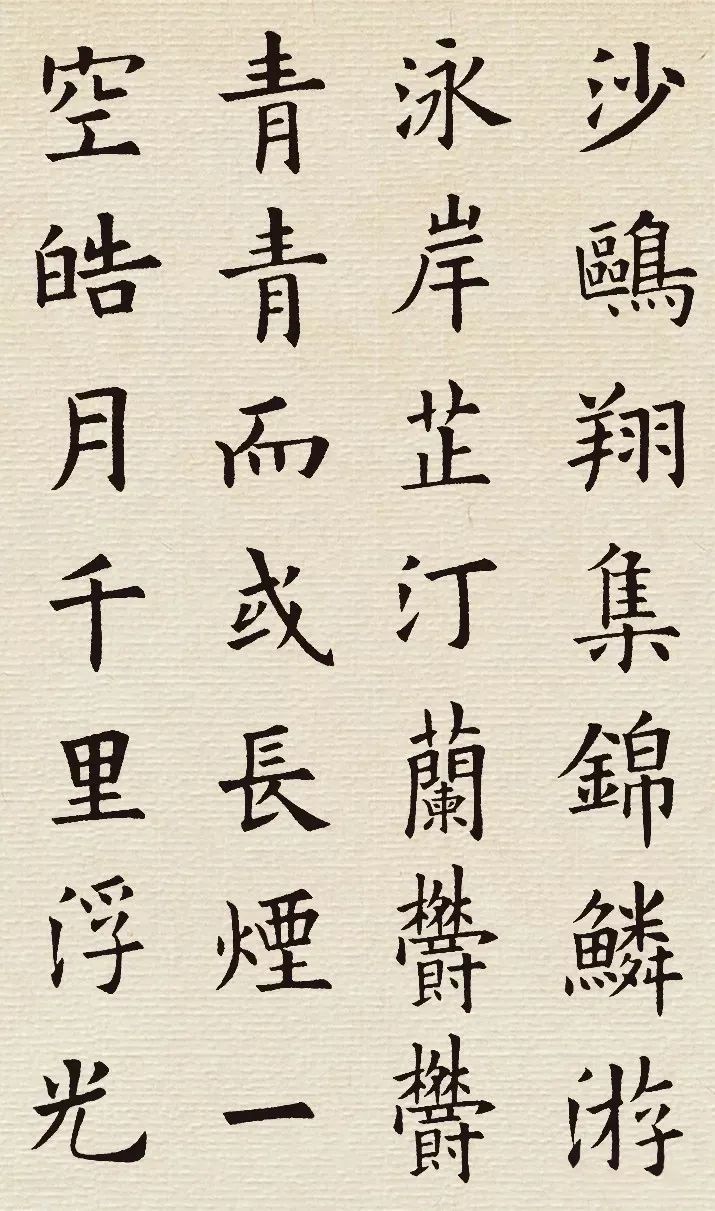 沙鷗翔集錦鱗游
泳岸芷汀蘭欝欝
青青而或長煙一
空皓月千里浮光